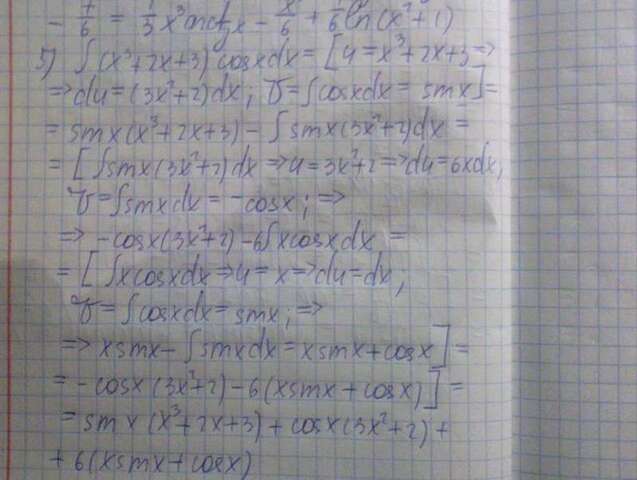 - 7/6 = 1/3 x³ arctg x - x/6 + 1/6 ln(x²+1)
5) ∫(x³+2x+3) cosxdx = [u=x³+2x+3 =>
=> du=(3x²+2)dx; V=∫cosxdx = sinx] =
= sinx(x³+2x+3) - ∫sinx(3x²+2)dx =
= [∫sinx(3x²+2)dx => u=3x²+2 => du=6xdx,
V=∫sinxdx = -cosx; =>
=> -cosx(3x²+2) - 6∫xcosxdx =
= [∫xcosxdx => u=x => du=dx;
V=∫cosxdx = sinx; =>
=> xsinx - ∫sinxdx = xsinx + cosx] =
= -cosx(3x²+2) - 6(xsinx + cosx)] =
= sinx(x³+2x+3) + cosx(3x²+2) +
+ 6(xsinx + cosx)